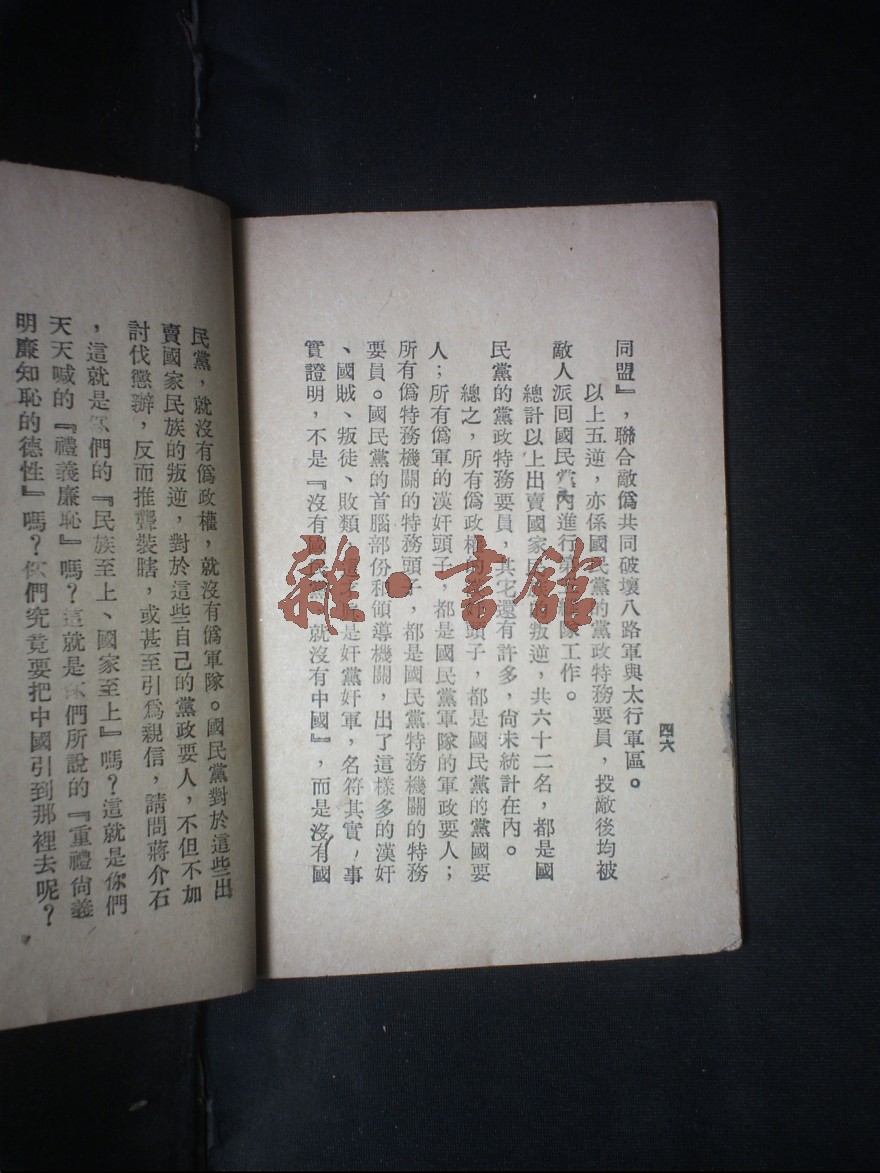 四六
同盟』，聯合敵偽共同破壞八路軍與太行軍區。
以上五逆，亦係國民黨的黨政特務要員，投敵後均被
敵人派回國民黨內進行第 隊工作。
總計以上出賣國家民 叛逆，共六十二名，都是國
民黨的黨政特務要員，其它還有許多，尙未統計在內。
總之，所有偽政權的 頭子，都是國民黨的黨國要
人；所有偽軍的漢奸頭子，都是國民黨軍隊的軍政要人；
所有偽特務機關的特務頭子，都是國民黨特務機關的特務
要員。國民黨的首腦部份和領導機關，出了這樣多的漢奸
、國賊、叛徒、敗類， 是奸黨奸軍，名符其實，事
實證明，不是『沒有國民黨 就沒有中國』，而是沒有國
民黨，就沒有偽政權，就沒有偽軍隊。國民黨對於這些出
賣國家民族的叛逆，對於這些自己的黨政要人，不但不加
討伐懲辦，反而推聾裝瞎，或甚至引爲親信，請問蔣介石
，這就是你們的『民族至上、國家至上』嗎？這就是你們
天天喊的『禮義廉恥』嗎？這就是你們所說的『重禮尙義
明廉知恥的德性』嗎？你們究竟要把中國引到那裡去呢？
雜·書館